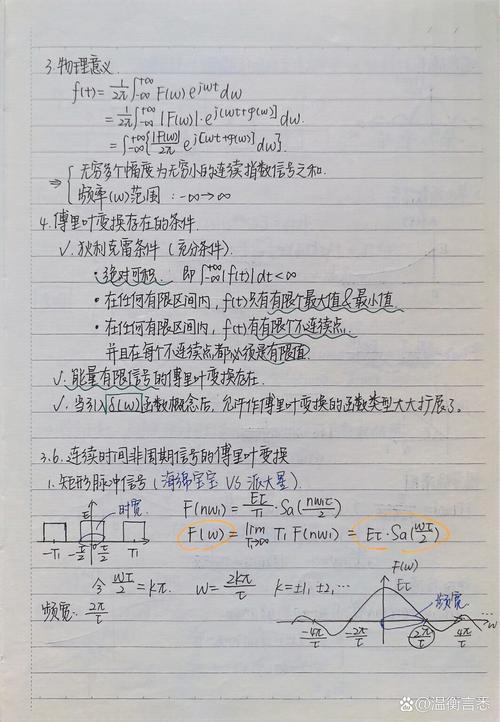 3. 物理意义
f(t) = 1/2π ∫_{-∞}^{+∞} F(w) e^{jwt} dw
= 1/2π ∫_{-∞}^{+∞} |F(w)|·e^{j[wt+φ(w)]} dw.
= ∫_{-∞}^{+∞} {|F(w)|/2π e^{j[wt+φ(w)]} dw}.
⇒ { 无穷多个幅度为无穷小的连续指数信号之和.
频率(w)范围 : -∞→∞
4. 傅里叶变换存在的条件
√. 狄利克雷条件 (充分条件).
• 绝对可积. 即 ∫_{-∞}^{+∞} |f(t)| dt < ∞
• 在任何有限区间内, f(t)只有有限个最大值&最小值.
• 在任何有限区间内, f(t)有有限个不连续点.
并且在每个不连续点都必须是有限值.
√. 能量有限信号的傅里叶变换存在.
√. 当引入 δ(w) 函数概念后, 允许作傅里叶变换的函数类型大大扩展了。
3.6. 连续时间非周期信号的傅里叶变换
1. 矩形脉冲信号 (海绵宝宝 VS 派大星)
E
时宽
-T1 -τ/2 0 τ/2 T1
F(nw1) = Eτ/T1 · Sa(nw1τ/2)
F(w) = lim_{T1→∞} T1 F(nw1) = Eτ·Sa(wτ/2)
令 wτ/2 = kπ. w = 2kπ/τ k=±1, ±2, …
频宽: 2π/τ
F(w)
Eτ
频宽
-4π/τ -2π/τ 2π/τ 4π/τ w
百家号@温衡言悉